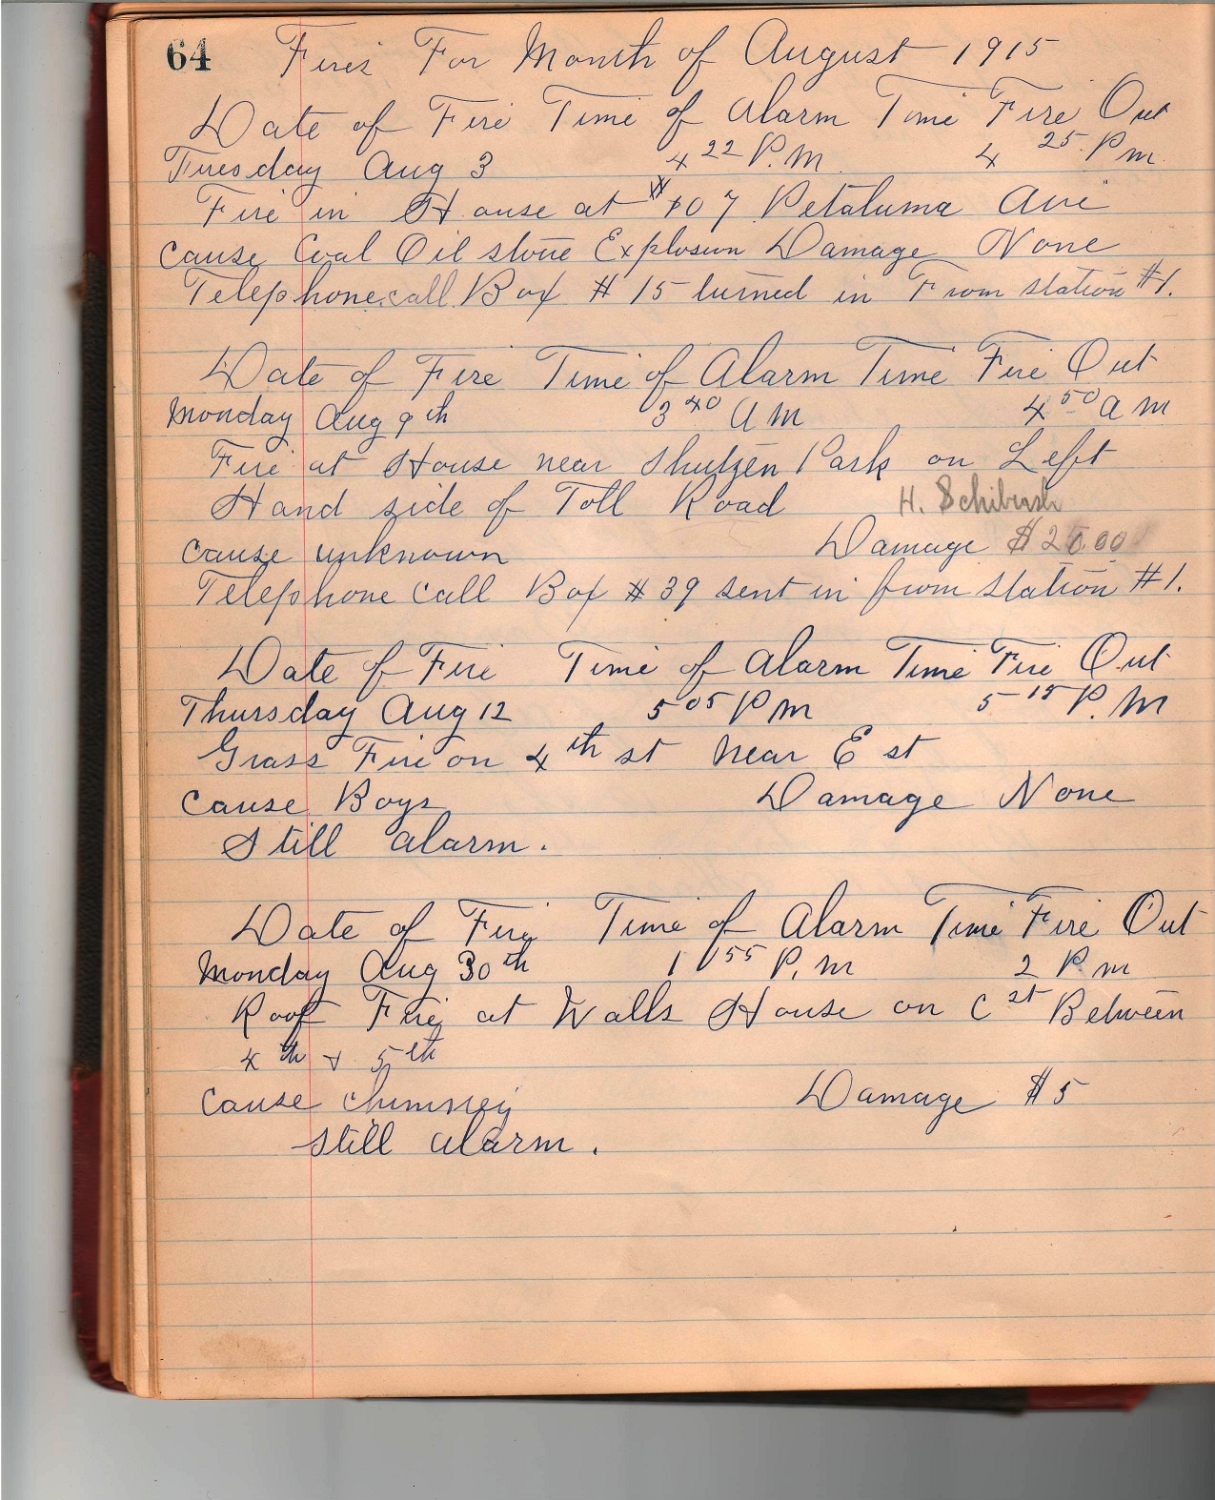 64 Fires For Month of August 1915
Date of Fire Time of Alarm Time Fire Out
Tuesday Aug 3 4 22 P.M 4 25 P m
Fire in House at 707 Petaluma Ave
Cause Coal Oil stove Explosion Damage None
Telephone call Box # 15 turned in From station #1.
Date of Fire Time of Alarm Time Fire Out
Monday Aug 9th 3 40 A M 4 50 a m
Fire at House near Shutzen Park on Left
Hand side of Toll Road H.
Cause unknown Damage
Telephone Call Box # 39 sent in from station #1.
Date of Fire Time of Alarm Time Fire Out
Thursday Aug 12 5 05 P m 5 15 P. M
Grass Fire on 4th st near E st
Cause Boys Damage None
Still alarm.
Date of Fire Time of Alarm Time Fire Out
Monday Aug 30th 1 55 P. m 2 P m
Roof Fire at Walls House on C st Between
4th & 5th
Cause chimney Damage $5
still alarm.